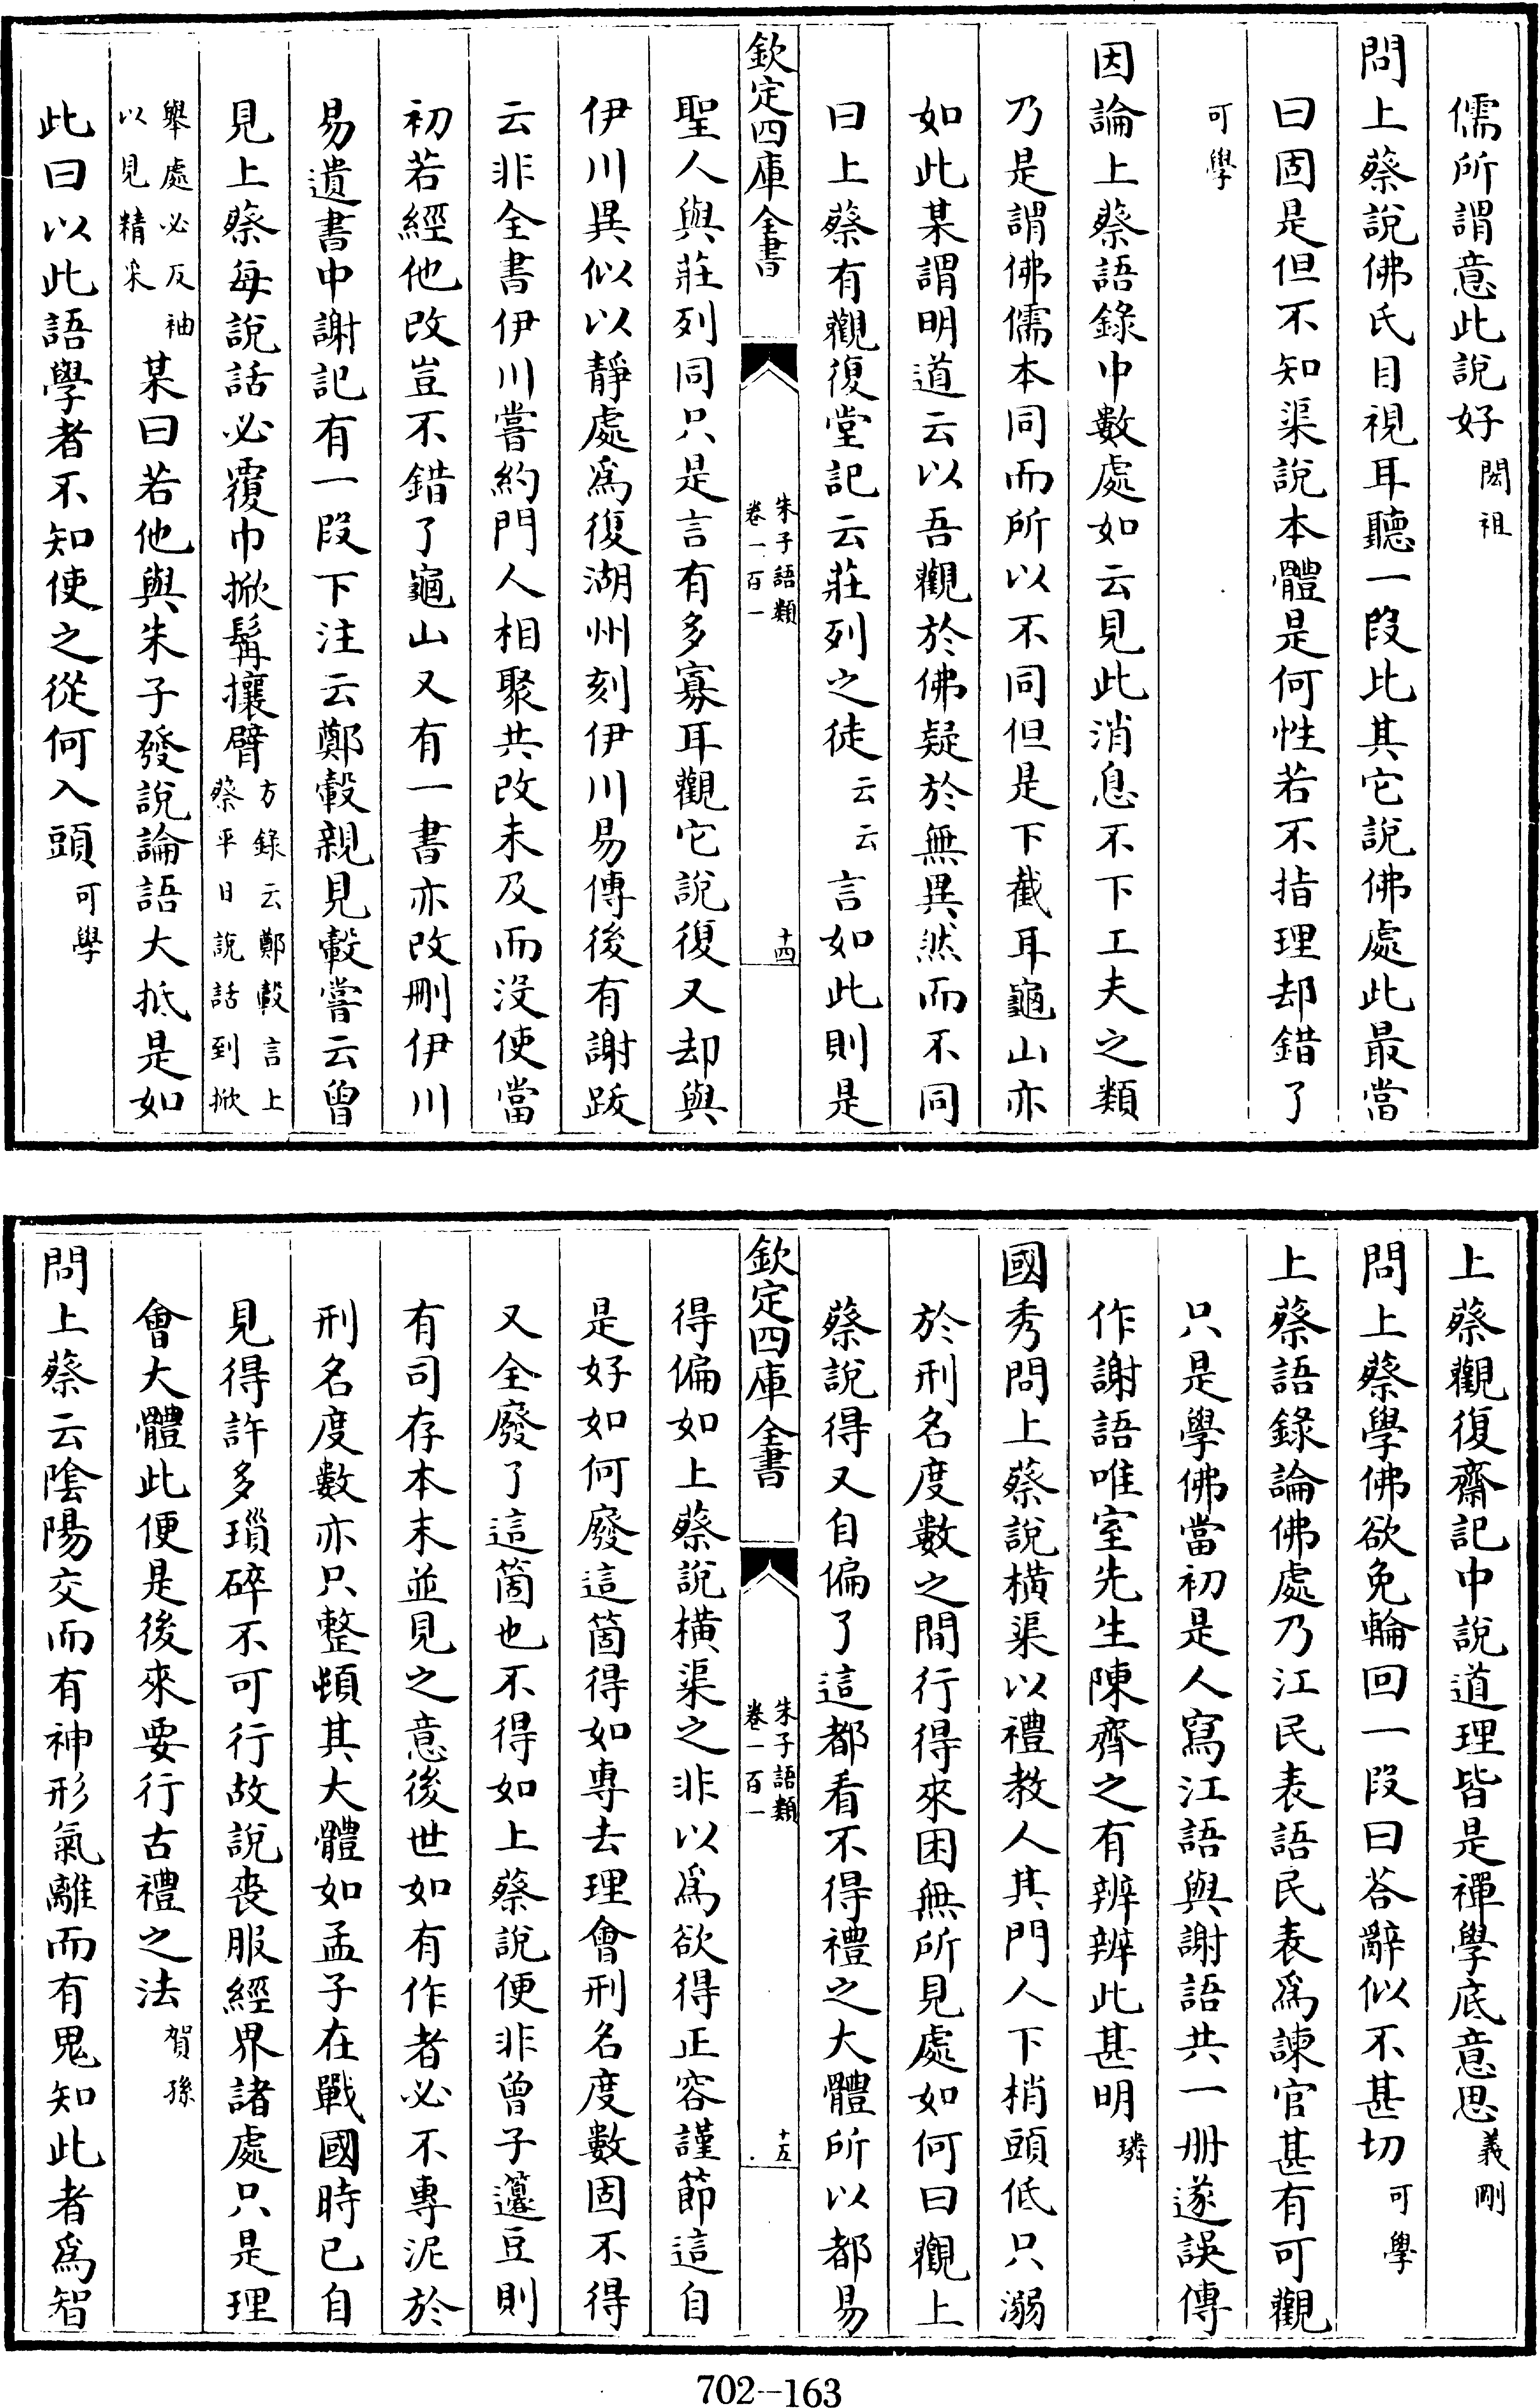 儒所謂意此說好閎祖
問上蔡說佛氏目視耳聽一段比其它說佛處此最當
曰固是但不知渠說本體是何性若不指理却錯了
可學
因論上蔡語錄中數處如云見此消息不下工夫之類
乃是謂佛儒本同而所以不同但是下截耳龜山亦
如此某謂明道云以吾觀於佛疑於無異然而不同
曰上蔡有觀復堂記云莊列之徒云云言如此則是
欽定四庫全書
朱子語類
卷一百一
十四
聖人與莊列同只是言有多寡耳觀它說復又却與
伊川異似以靜處爲復湖州刻伊川易傳後有謝跋
云非全書伊川嘗約門人相聚共改未及而沒使當
初若經他改豈不錯了龜山又有一書亦改刪伊川
易遺書中謝記有一段下注云鄭轂親見轂嘗云曾
見上蔡每說話必覆巾掀髯攘臂方錄云鄭轂言上
蔡平日說話到掀
舉處必反袖
以見精采某曰若他與朱子發說論語大抵是如
此曰以此語學者不知使之從何入頭可學
上蔡觀復齋記中說道理皆是禪學底意思義剛
問上蔡學佛欲免輪回一段曰荅辭似不甚切可學
上蔡語錄論佛處乃江民表語民表爲諫官甚有可觀
只是學佛當初是人寫江語與謝語共一冊遂誤傳
作謝語唯室先生陳齊之有辨辨此甚明璘
國秀問上蔡說橫渠以禮教人其門人下梢頭低只溺
於刑名度數之間行得來困無所見處如何曰觀上
蔡說得又自偏了這都看不得禮之大體所以都易
欽定四庫全書
朱子語類
卷一百一
十五
得偏如上蔡說橫渠之非以爲欲得正容謹節這自
是好如何廢這箇得如專去理會刑名度數固不得
又全廢了這箇也不得如上蔡說便非曾子籩豆則
有司存本末並見之意後世如有作者必不專泥於
刑名度數亦只整頓其大體如孟子在戰國時已自
見得許多瑣碎不可行故說喪服經界諸處只是理
會大體此便是後來要行古禮之法賀孫
問上蔡云陰陽交而有神形氣離而有鬼知此者爲智
702—163